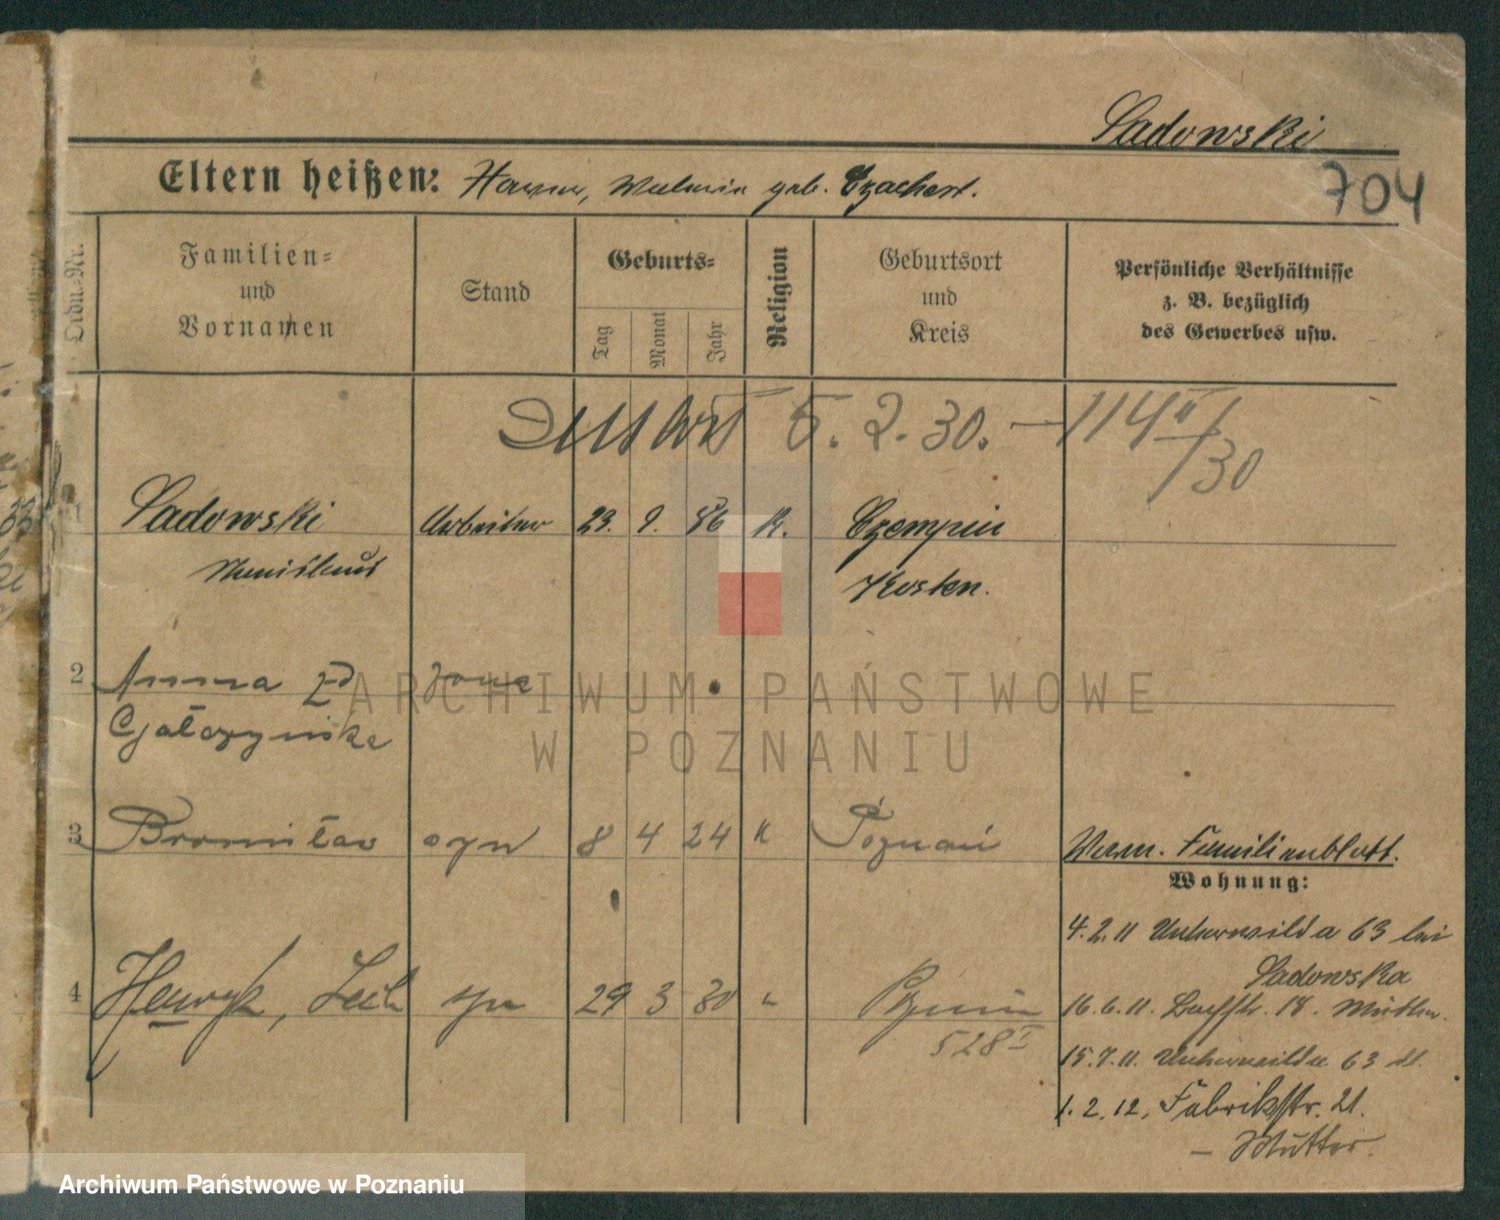 Sadowski
Eltern heißen: geb. Czachert.
704
Ordn.-Nr.
Familien-
und
Vornamen
Stand
Geburts-
Tag
Monat
Jahr
Religion
Geburtsort
und
Kreis
Persönliche Verhältnisse
z. B. bezüglich
des Gewerbes usw.
5. 2. 30. — 114 II/30
1 Sadowski Arbeiter 23. 9. 86 K. Czempin
Kosten.
2 Anna zd żona
3 Bronisław syn 8 4 24 K Poznań
Familienblatt.
Wohnung:
4.2.11 Unterwilda 63 bei
Sadowska
4 Henryk, Lech syn 29 3 30 "
528 I
16.6.11. 18. Mutter.
15.7.11. Unterwilda 63
1.2.12, Fabrikstr. 21.
— Mutter.
ARCHIWUM PAŃSTWOWE
W POZNANIU
Archiwum Państwowe w Poznaniu